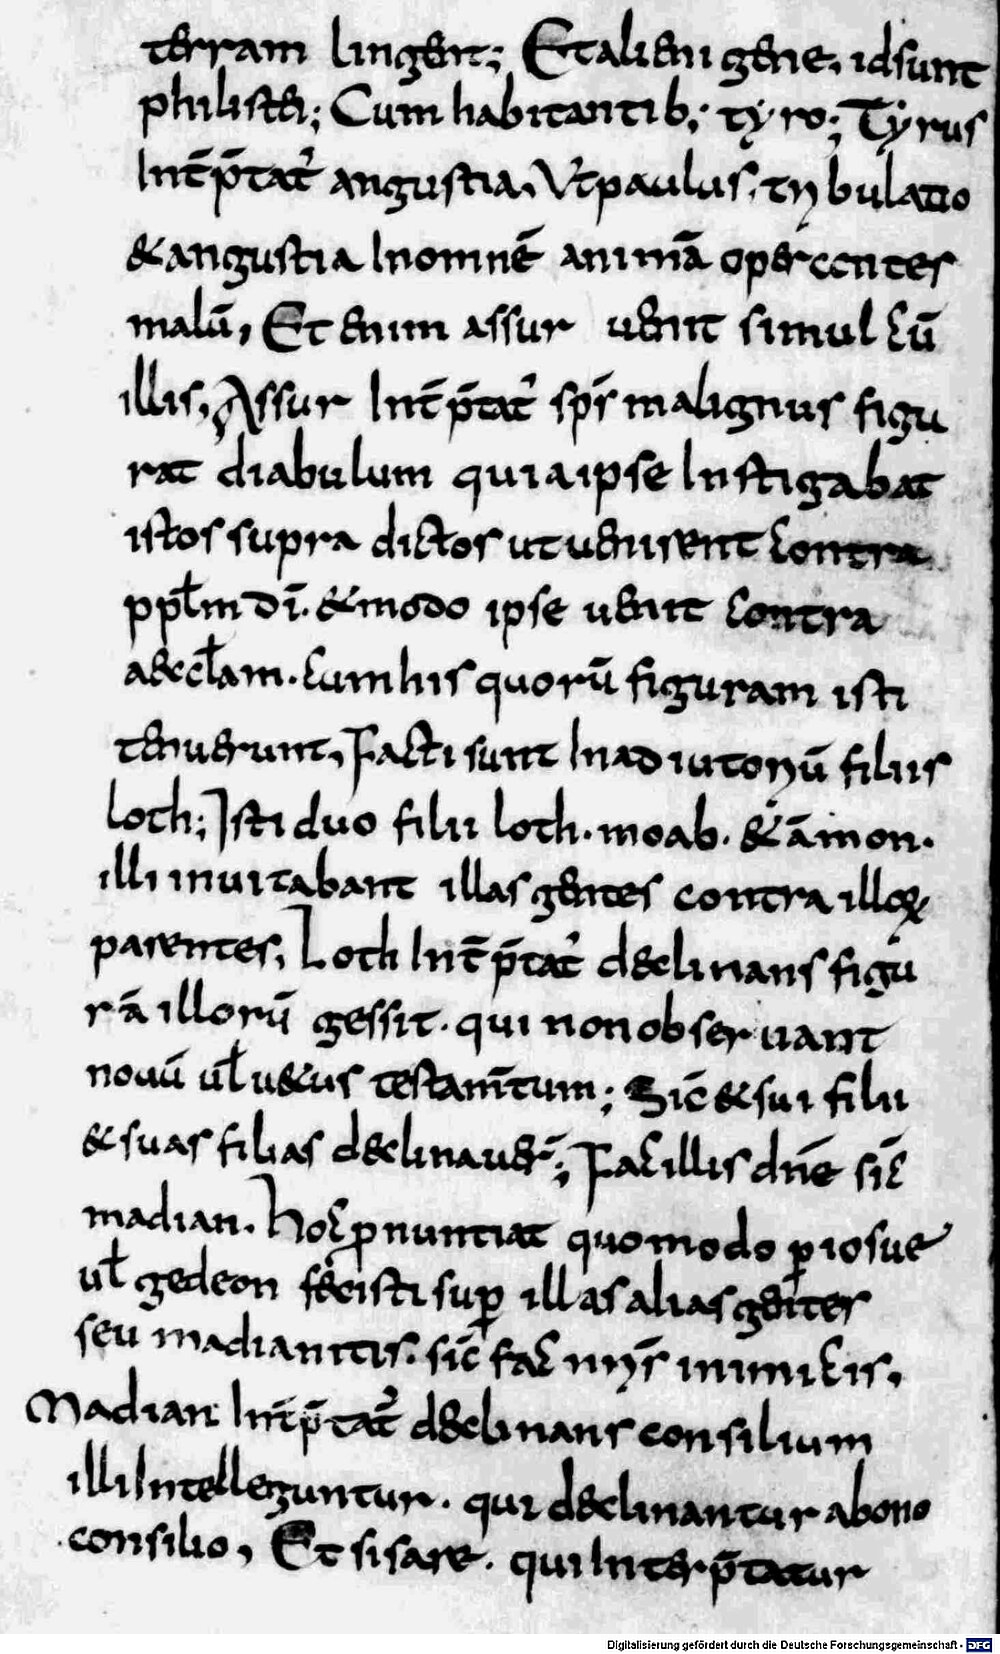 terram lingent; Et alienigene, id sunt
philistei; Cum habitantib; tyro; Tyrus
Int̄p̄tat̉ angustia, Vt paulus, tribulatio
& angustia In omnē animā operantes
malū, Et enim assur uenit simul cū
illis, Assur Int̄p̄tat̉ sp̄s malignus figu
rat diabulum quia ipse Instigabat
istos supra dictos ut uenirent contra
ppl̄m dī. & modo ipse uenit contra
aeccl̄am. cum his quorū figuram isti
tenuerunt, Facti sunt In adiutoriū filiis
loth; Isti duo filii loth. moab. & āmon.
illi inuitabant illas gentes contra illoꝝ
parentes, Loth Int̄p̄tat̉ declinans figu
rā illorū gessit. qui non obseruant
nouū ul̄ uetus testam̄tum; Sic̄ & sui filii
& suas filias declinauer̄; Fac illis dn̄e sic̄
madian. hoc ꝓnuntiat quomodo ꝑ iosue
ul̄ gedeon fecisti suꝑ illas alias gentes
seu madianitis. sic̄ fac nr̄is inimicis,
Madian Int̄p̄tat̉ declinans consilium
illi Intelleguntur. qui declinantur a bono
consilio, Et sisare. qui Interp̄tatur
Digitalisierung gefördert durch die Deutsche Forschungsgemeinschaft - DFG